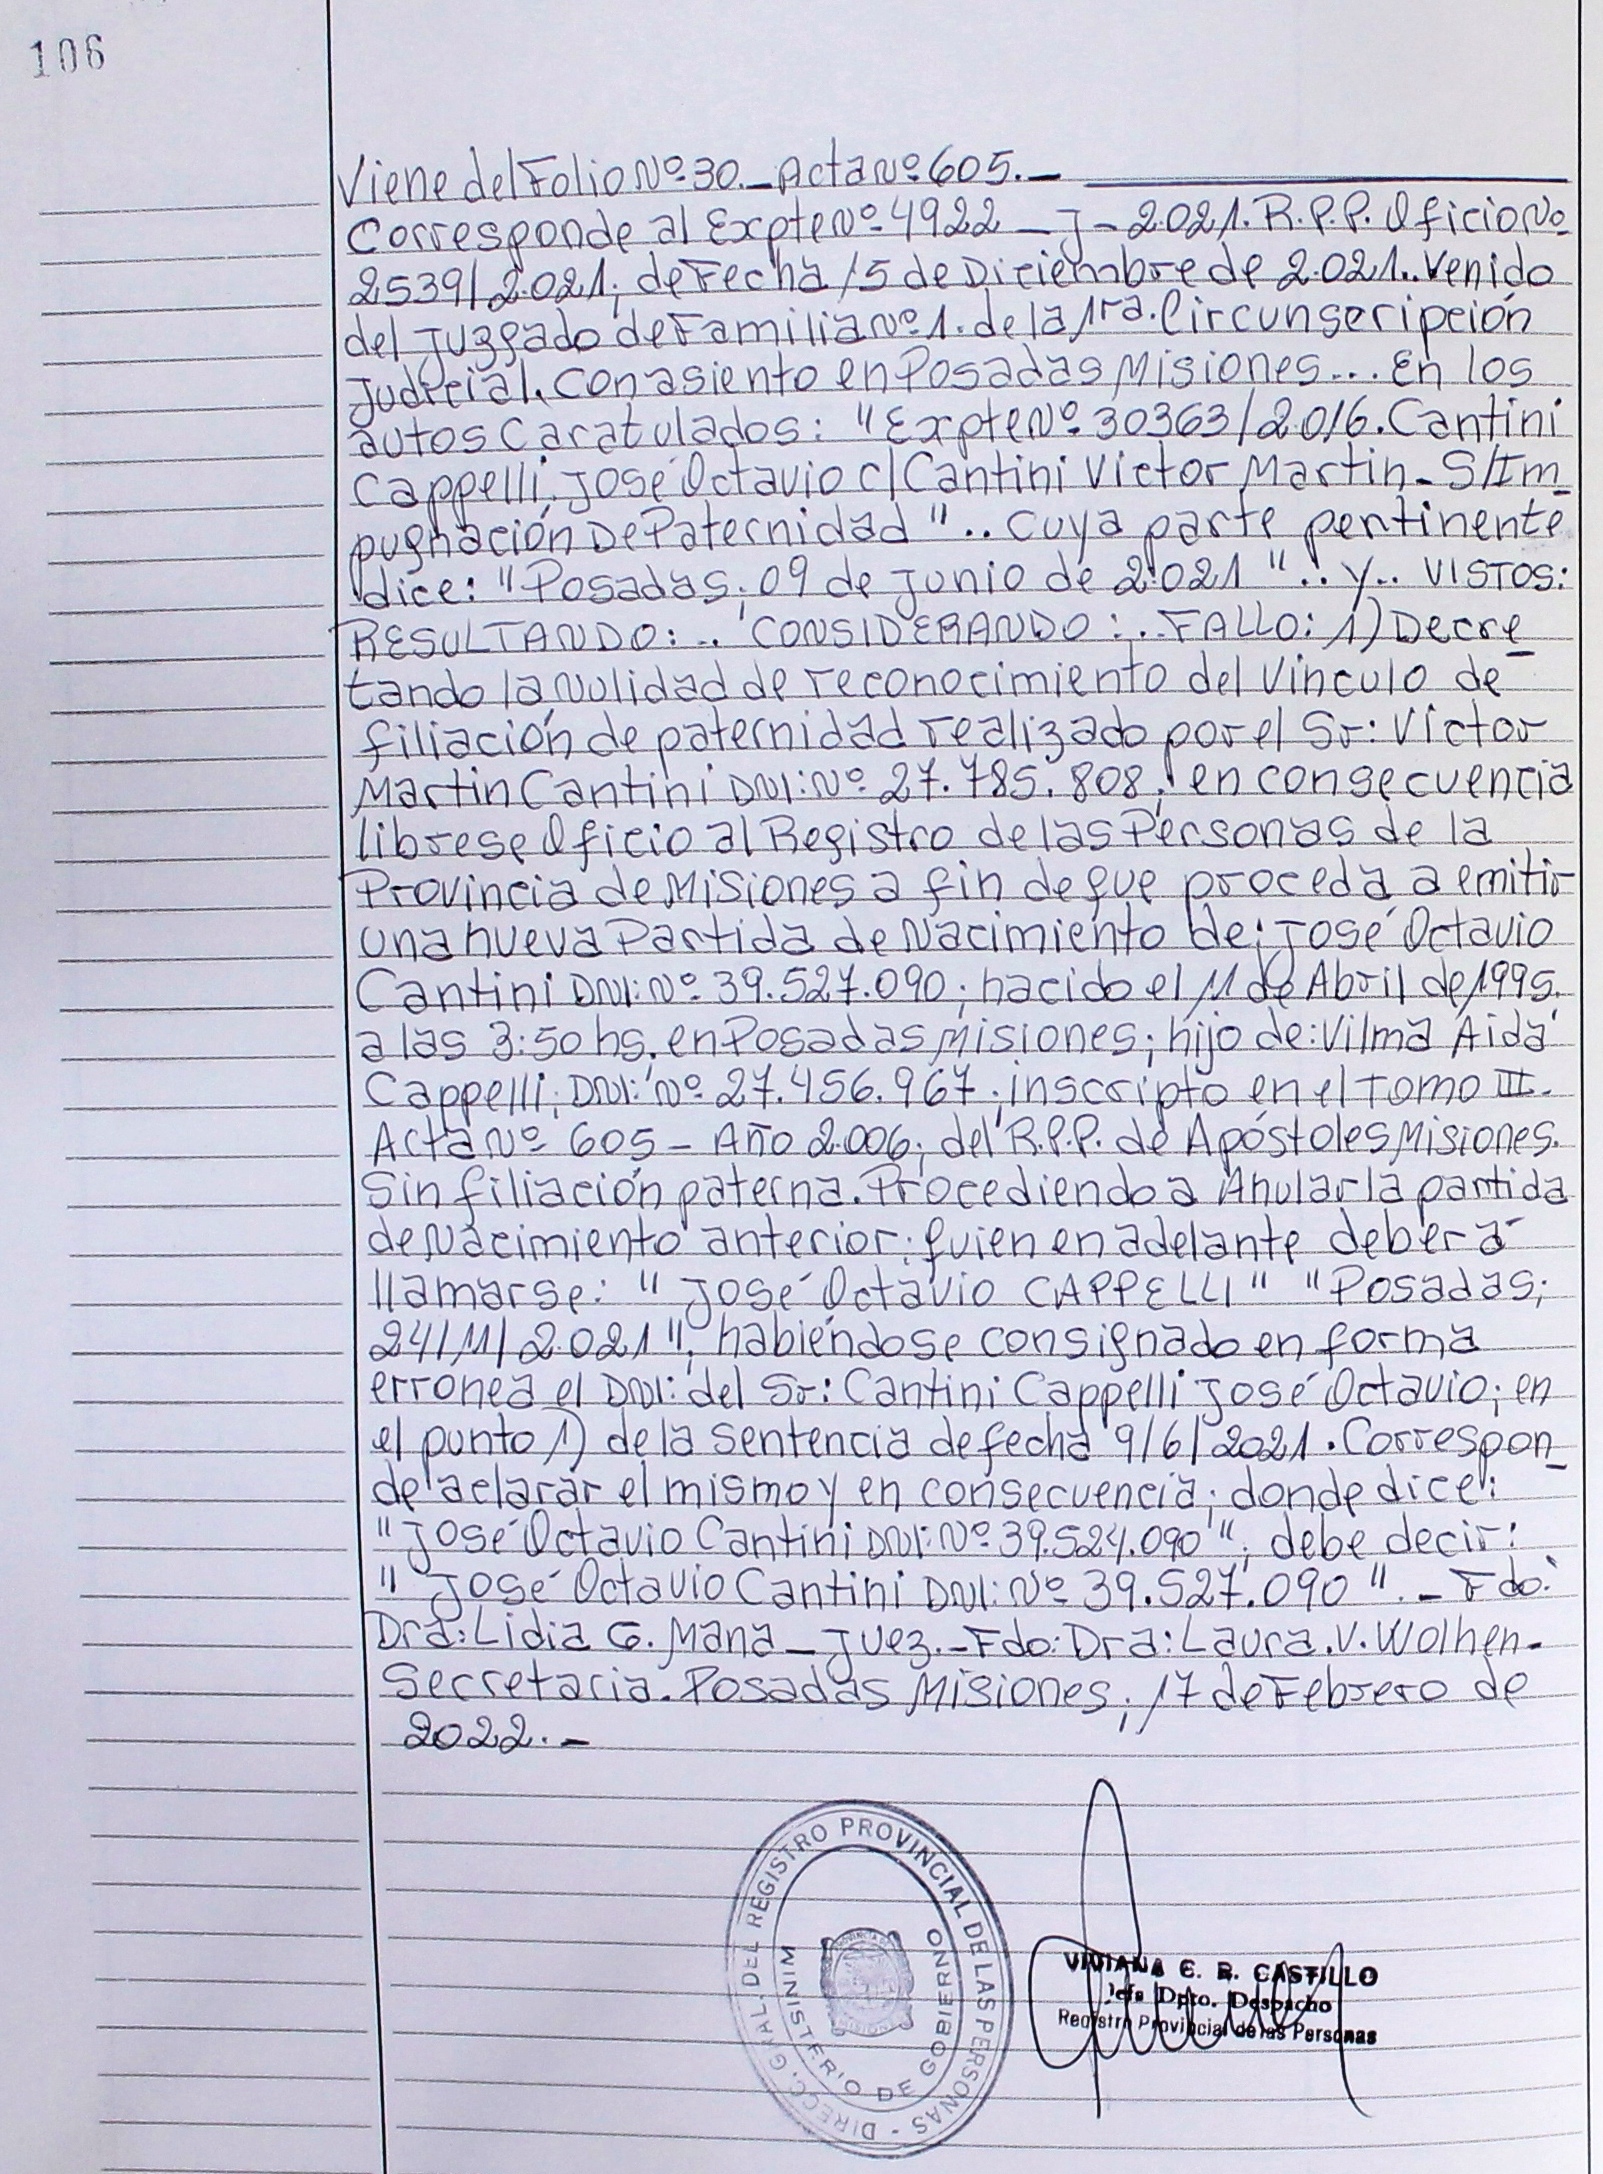 106
Viene del Folio Nº 30._ Acta Nº 605._
Corresponde al Expte Nº 4922 _ J - 2.021. R.P.P. Oficio Nº
2539/2.021; de Fecha 15 de Diciembre de 2.021.. Venido
del Juzgado de Familia Nº 1. de la 1ra. Circunscripción
Judicial. Con asiento en Posadas Misiones... En los
autos Caratulados: "Expte Nº 30363/2.016. Cantini
Cappelli, José Octavio c/ Cantini Victor Martin_ S/Im_
pugnación De Paternidad".. cuya parte pertinente
dice: "Posadas; 09 de Junio de 2.021".. y.. VISTOS:
RESULTANDO:.. CONSIDERANDO:.. FALLO: 1) Decre_
tando la Nulidad de reconocimiento del Vínculo de
filiación de paternidad realizado por el Sr: Víctor
Martin Cantini DNI: Nº 27.785.808; en consecuencia
librese Oficio al Registro de las Personas de la
Provincia de Misiones a fin de que proceda a emitir
una nueva Partida de Nacimiento de: José Octavio
Cantini DNI: Nº 39.527.090; nacido el 11 de Abril de 1995.
a las 3:50 hs. en Posadas Misiones; hijo de: Vilma Aida
Cappelli; DNI: Nº 27.456.967; inscripto en el Tomo III.
Acta Nº 605 - Año 2.006; del R.P.P. de Apóstoles Misiones.
Sin filiación paterna. Procediendo a Anular la partida
de Nacimiento anterior; quien en adelante deberá
llamarse: "José Octavio CAPPELLI" "Posadas;
24/11/2.021"; habiéndose consignado en forma
erronea el DNI: del Sr: Cantini Cappelli José Octavio; en
el punto 1) de la Sentencia de fecha 9/6/2021. Correspon_
de aclarar el mismo y en consecuencia; donde dice:
"José Octavio Cantini DNI: Nº 39.524.090"; debe decir:
"José Octavio Cantini DNI: Nº 39.527.090"._ Fdo:
Dra: Lidia G. Mana _ Juez._ Fdo: Dra: Laura.V. Wolhen-
Secretaria. Posadas Misiones; 17 de Febrero de
2022._
DIRECC. GRAL. DEL REGISTRO PROVINCIAL DE LAS PERSONAS -
MINISTERIO DE GOBIERNO
VIVIANA E. R. CASTILLO
Jefa Dpto. Despacho
Registro Provincial de las Personas